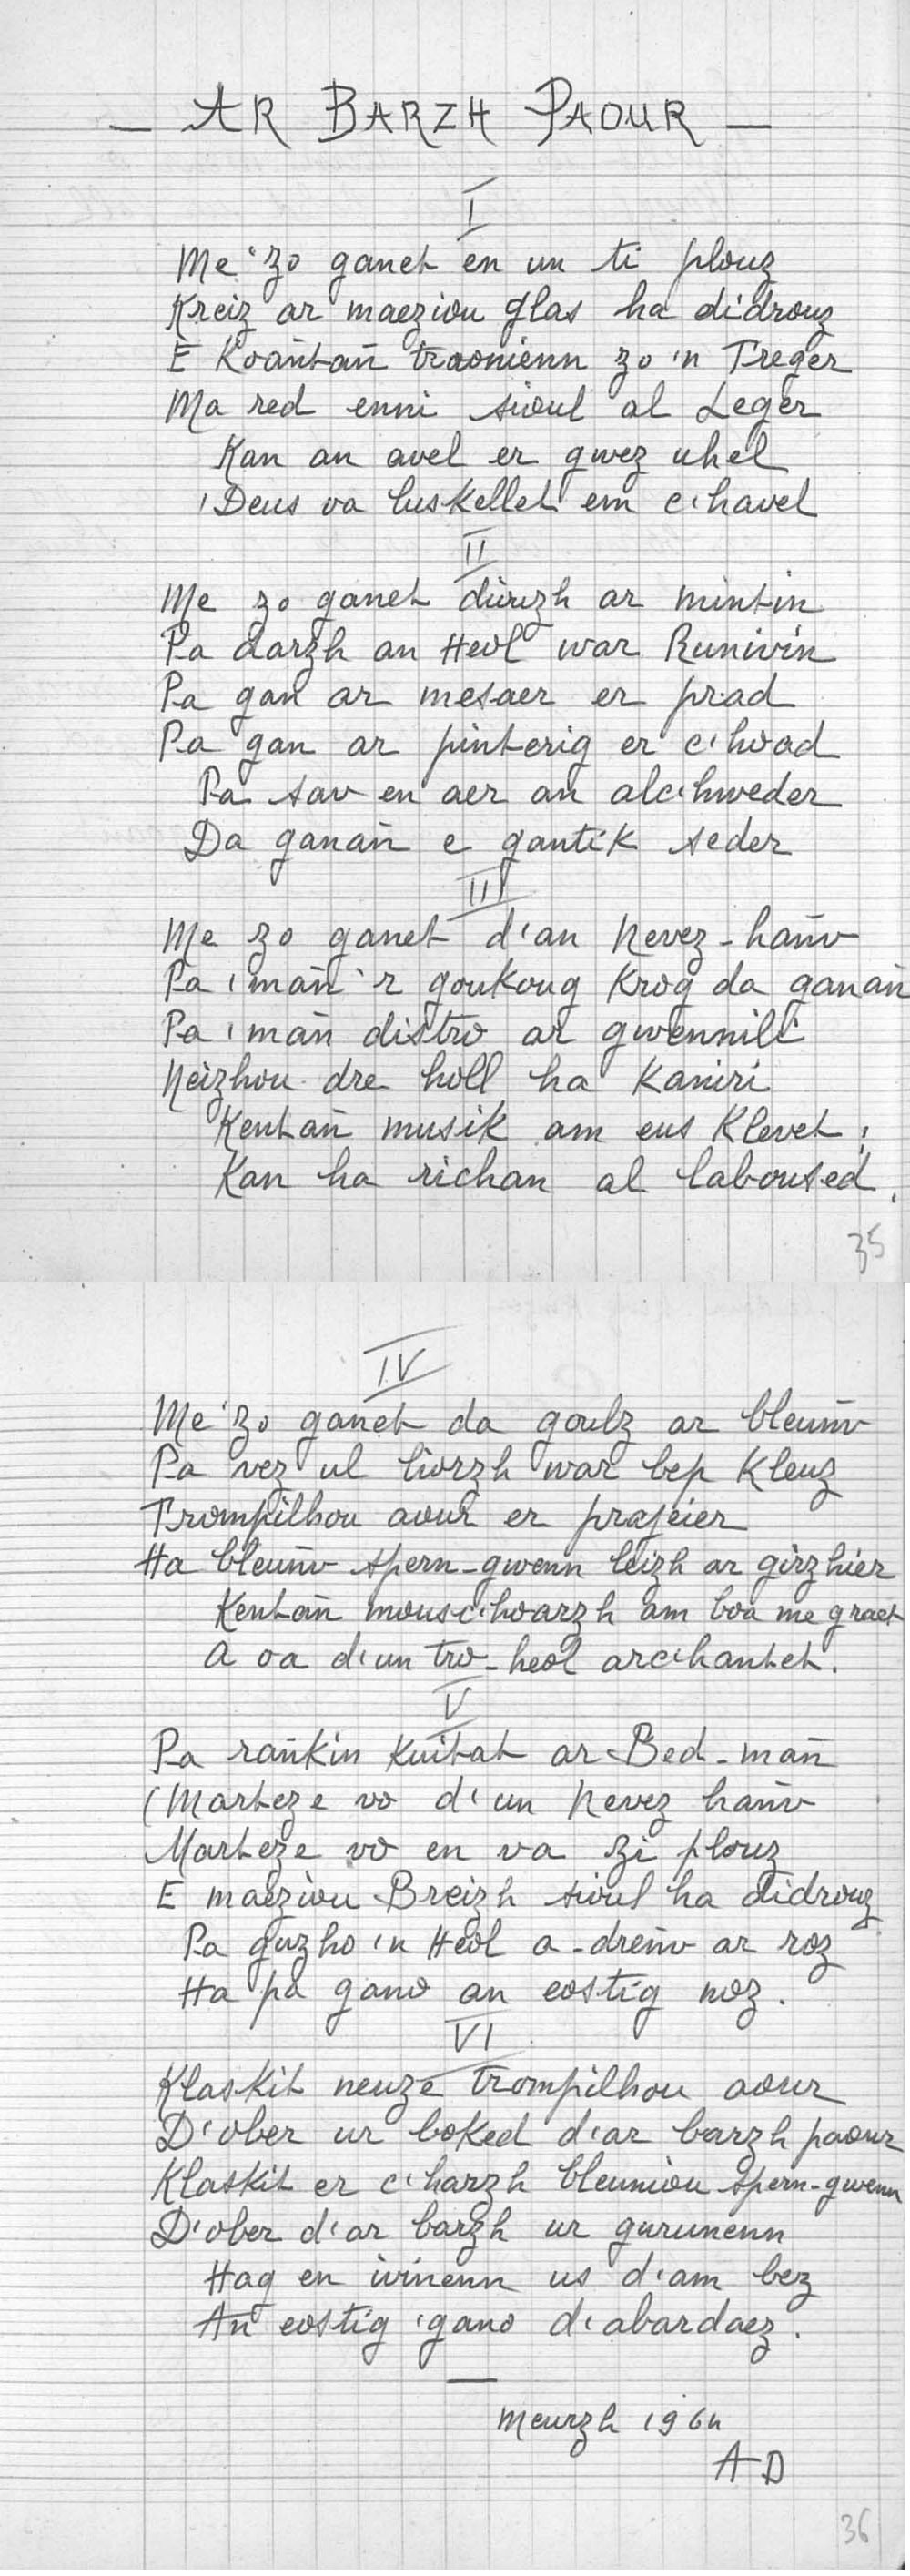 — AR BARZH PAOUR —
I
Me 'zo ganet en un ti plouz
Kreiz ar maeziou glas ha didrouz
E Koantañ traonienn zo 'n Treger
Ma red enni sioul al Leger
Kan an avel er gwez uhel
'Deus va luskellet em c'havel
II
Me zo ganet diouzh ar mintin
Pa darzh an Heol war Runivin
Pa gan ar mesaer er prad
Pa gan ar pinterig er c'hoad
Pa sav en aer an alc'hweder
Da ganañ e gantik seder
III
Me zo ganet d'an Nevez-hañv
Pa 'mañ 'r goukoug Krog da ganañ
Pa 'mañ distro ar gwennili
Neizhou dre holl ha Kaniri
Kentañ musik am eus Klevet :
Kan ha richan al laboused.
35
IV
Me 'zo ganet da goulz ar bleuñv
Pa vez ul liorzh war bep Kleuz
Trompilhou aour er prajeier
Ha bleuñv spern-gwenn leizh ar girzhier
Kentañ mousc'hoarzh am boa me graet
A oa d'un tro-heol arc'hantet.
V
Pa rankin Kuitat ar Bed-mañ
(Marteze vo d'un Nevez hañv
Marteze vo en va zi plouz
E maeziou Breizh sioul ha didrouz
Pa guzho 'n Heol a-dreñv ar roz
Ha pa gano an eostig noz.
VI
Klaskit neuze trompilhou aour
D'ober ur boked d'ar barzh paour
Klaskit er c'harzh bleuniou spern-gwenn
D'ober d'ar barzh ur gurunenn
Hag en ivinenn us d'am bez
An eostig 'gano d'abardaez.
—
Meurzh 1964
A D
36